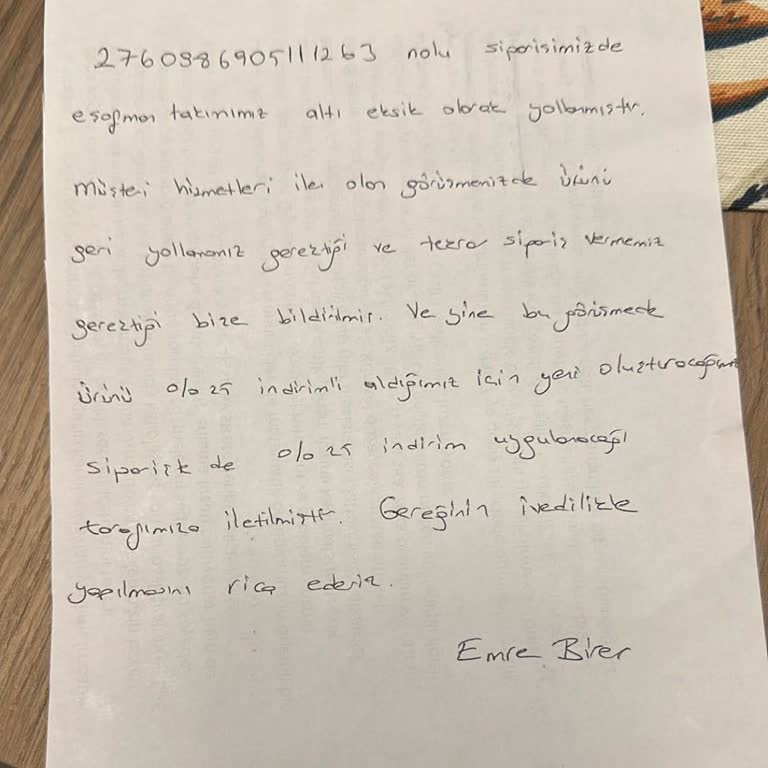 2760886905111263 nolu siparişimizde
eşofman takımımız altı eksik olarak yollanmıştır.
Müşteri hizmetleri ile olan görüşmenizde ürünü
geri yollamanız gerektiği ve tekrar sipariş vermemiz
gerektiği bize bildirilmiş. Ve yine bu görüşmede
ürünü %25 indirimli aldığımız için yeni oluşturacağımız
siparişte de %25 indirim uygulanacağı
tarafımıza iletilmiştir. Gereğinin ivedilikle
yapılmasını rica ederiz.
Emre Birer